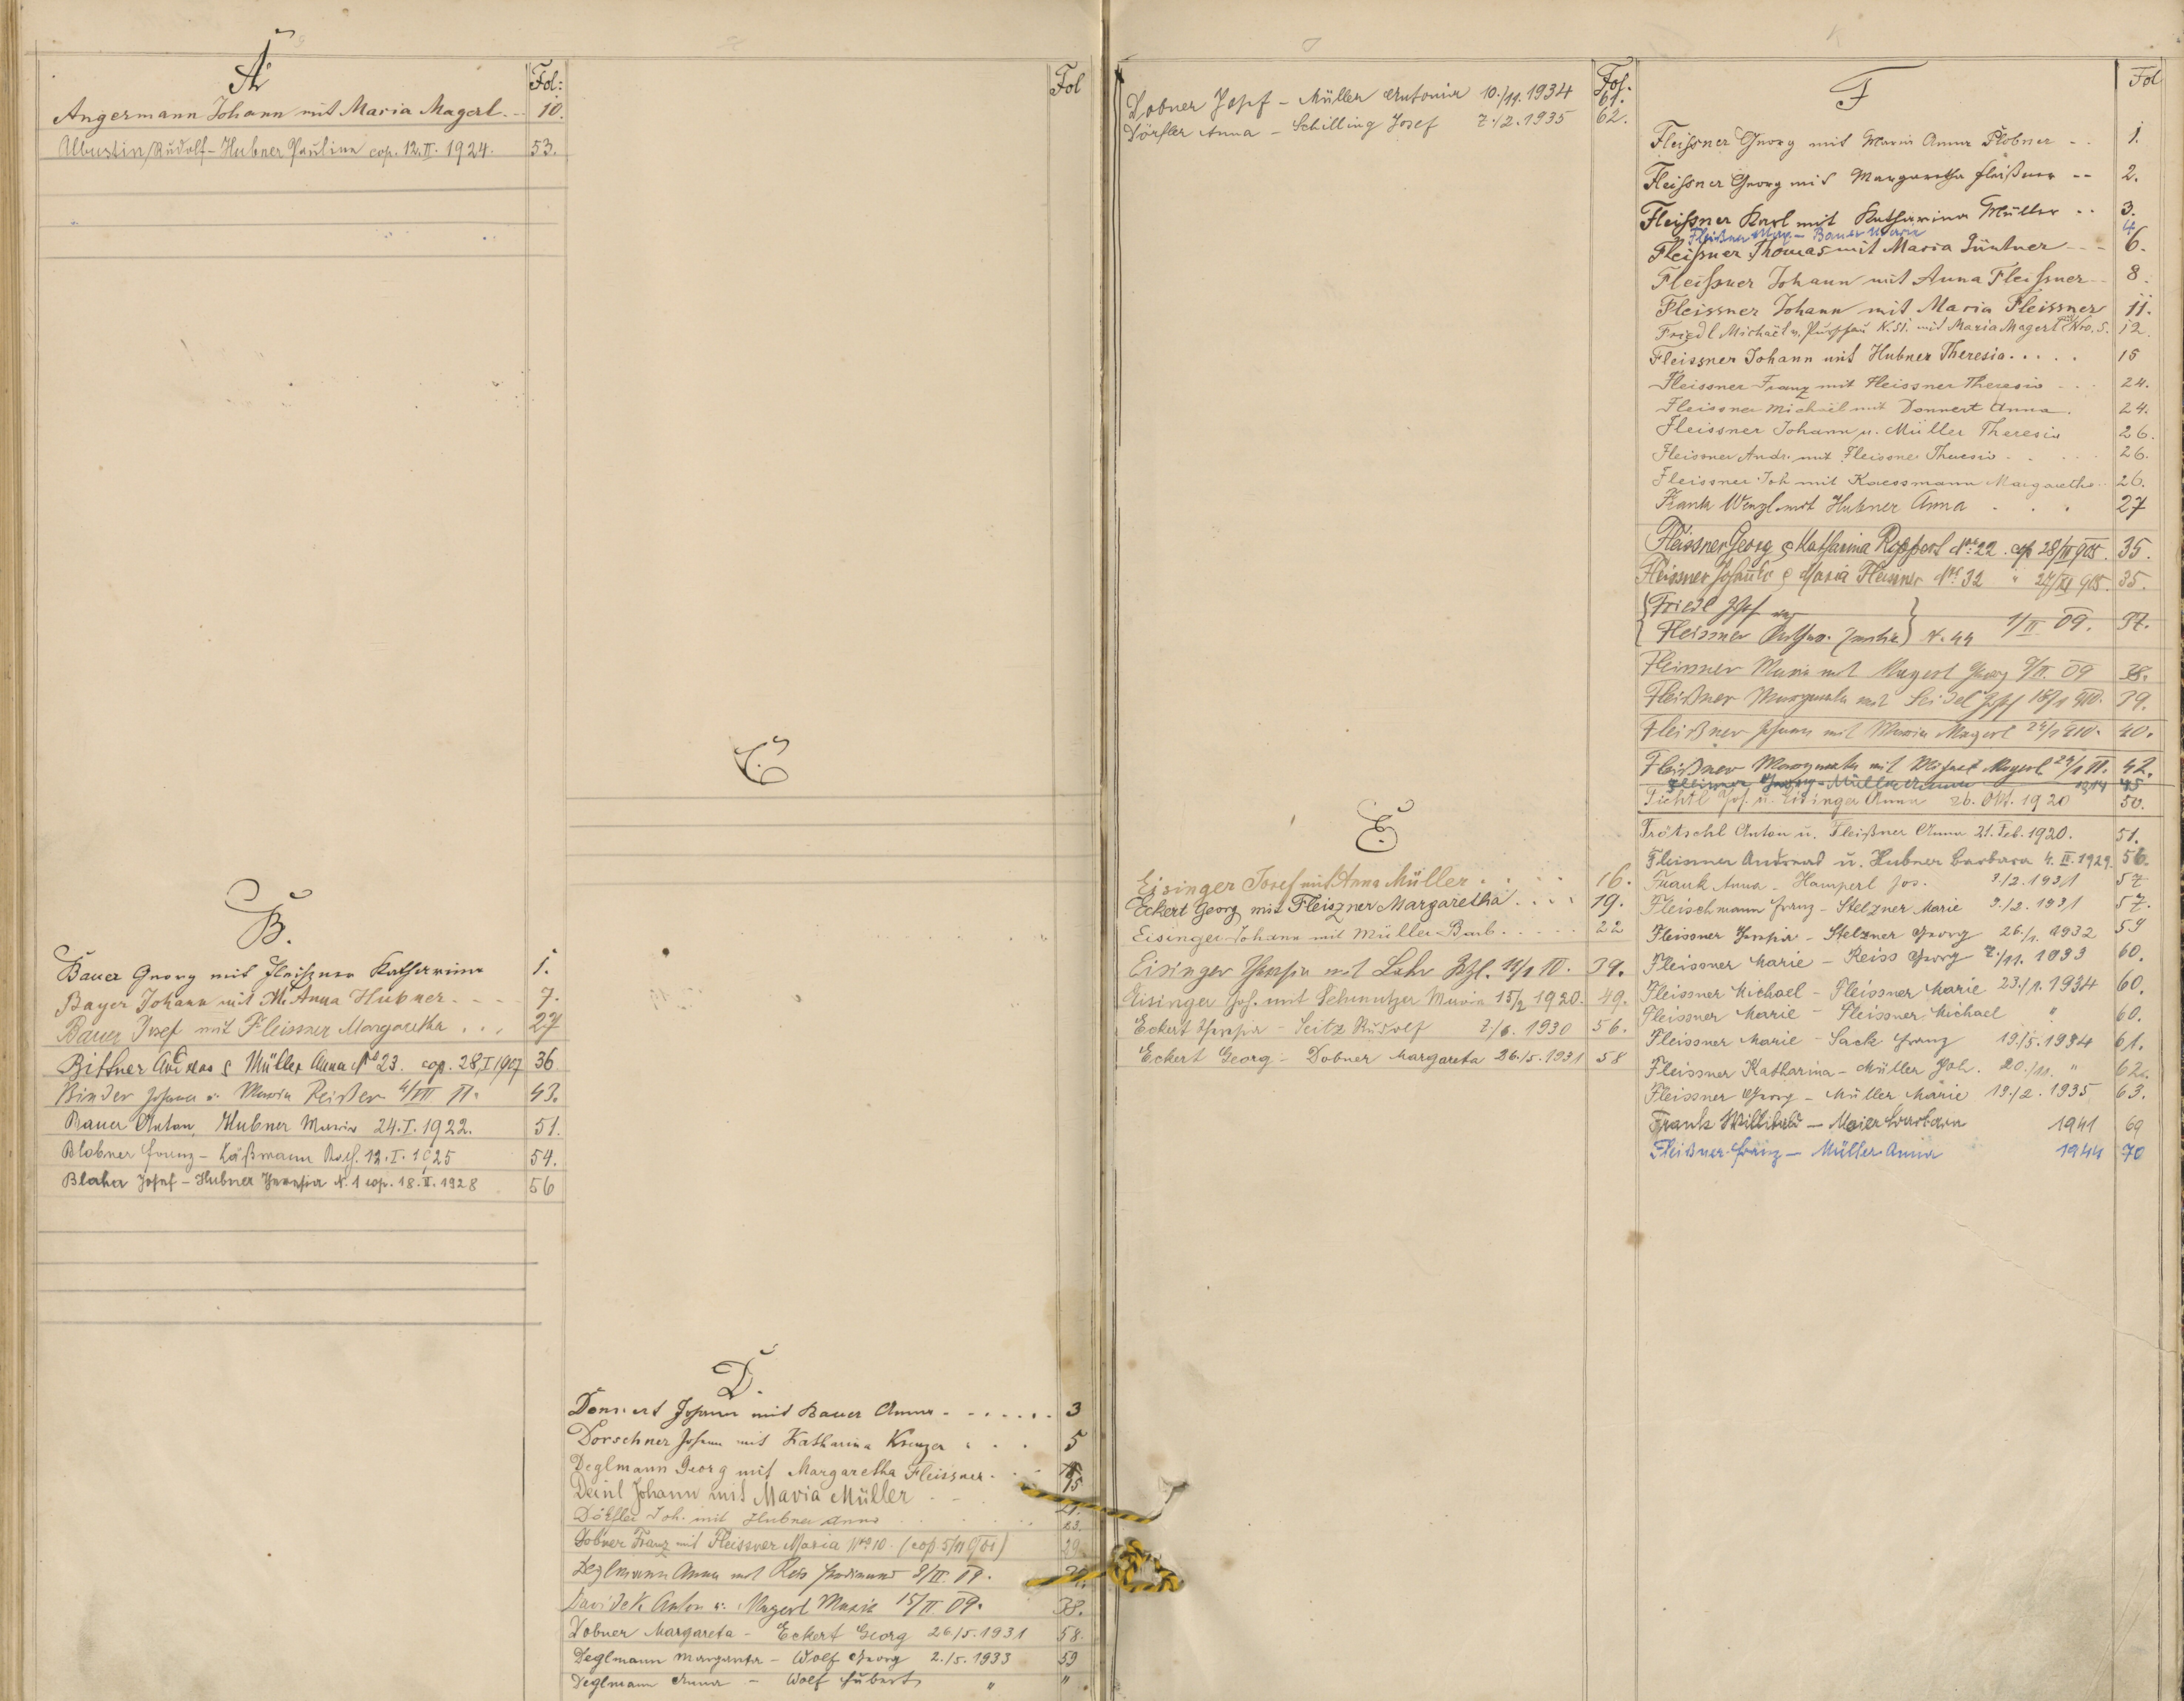 A
Fol:
Angermann Johann mit Maria Magerl. - 10.
Albustin Rudolf - Hubner Paulina cop. 12.II. 1924. 53.
B.
Bauer Georg mit Fleißner Katharina 1.
Bayer Johann mit M. Anna Hubner. - - - 7.
Bauer Josef mit Fleissner Margaretha . . , 27
Bittner & Müller Anna No 23. cop. 28/I 1907 36
Binder Johann u. Maria 4/VII 11. 43.
Bauer Anton, Hubner Maria 24.I.1922. 51.
Blobner Franz - Käßmann 12.I.1925 54.
Blaha Josef - Hubner Theresia N. 1 cop. 18.II.1928 56
Fol
C.
D.
Donnert Johann mit Bauer Anna - - . . . . . 3
Dorschner Johann mit Katharina Krenzer . . . 5
Deglmann Georg mit Margaretha Fleissner. . -
Deinl Johann mit Maria Müller - - 15
Dörfler Joh. mit Hubner Anna 23.
Dobner Franz mit Fleissner Maria Nro 10. 29
Deglmann Anna mit Reis Ferdinand 9/II. 09.
Davidek Anton u. Magerl Maria 15/II 09. 38.
Dobner Margareta - Eckert Georg 26./5.1931 58.
Deglmann Margareta - Wolf Georg 2./5.1933 59
Deglmann Anna - Wolf Hubert " "
Fol.
Dobner Josef - Müller Antonia 10./11.1934 61.
Dörfler Anna - Schilling Josef 7./2.1935 62.
E.
Eisinger Josef mit Anna Müller . . . . 16.
Eckert Georg mit Fleiszner Margaretha . . . . 19.
Eisinger Johann mit Müller Barb. . . . . . 22
Eisinger Theresia mit Lohr 39.
Eisinger Jos. mit Schmutzer Maria 15/2 1920. 49.
Eckert Theresia - Seitz Rudolf 7/6. 1930 56.
Eckert Georg - Dobner Margareta 26./5.1931 58
F
Fol
Fleißner Georg mit Maria Anna Plobner - . 1.
Fleissner Georg mit Margaretha Fleißner -- 2.
Fleissner Karl mit Katharina Müller . . 3.
Fleißner Max - Bauer Maria 4
Fleißner Thomas mit Maria Güntner - - - 6.
Fleißner Johann mit Anna Fleißner - 8.
Fleissner Johann mit Maria Fleissner 11.
Friedl Michael v. N. 51. mit Maria Magerl Nro. 5. 12
Fleissner Johann mit Hubner Theresia. . . . . 15
Fleissner Franz mit Fleissner Theresia - . . 24.
Fleissner Michael mit Donnert Anna. 24.
Fleissner Johann u. Müller Theresia 26.
Fleissner Andr. mit Fleissner Theresia . . 26.
Fleissner Joh mit Kaessmann Margaretha . . 26.
Frank Wenzl mit Hubner Anna . . . 27
Fleissner Georg & Katharina Rappert Nro 22. cop 28/II 905. 35.
Fleissner & Maria Fleissner Nro 32 " 27/XI 905. 35.
Friedl Josef
Fleissner N. 44 1/II 09. 37.
Fleissner Maria mit Magerl Georg 9/II. 09 38.
Fleißner Margareta mit Seidel Josef 18/1 910. 39.
Fleißner Johann mit Maria Magerl 24/1 910. 40.
Fleißner Margareta mit Michael Magerl 24/1 11. 42.
Fleissner Georg - Müller Anna 1914 45
Fichtl Jos. u. Eisinger Anna 26. Okt. 1920 50.
Frötschl Anton u. Fleißner Anna 21. Feb. 1920. 51.
Fleissner Andreas u. Hubner Barbara 4.II.1929. 56.
Frank Anna - Hamperl Jos. 3./2.1931 57
Fleischmann Franz - Stelzner Marie 9./2.1931 57.
Fleissner Theresia - Stelzner Georg 26./1.1932 59
Fleissner Marie - Reiss Georg 7./11.1933 60.
Fleissner Michael - Fleissner Marie 23./1.1934 60.
Fleissner Marie - Fleissner Michael " 60.
Fleissner Marie - Sack Franz 19./5.1934 61.
Fleissner Katharina - Müller Joh. 20./11. " 62.
Fleissner Georg - Müller Marie 19./2.1935 63.
Frank Willibald - Maier Barbara 1941 69
Fleißner Franz - Müller Anna 1944 70